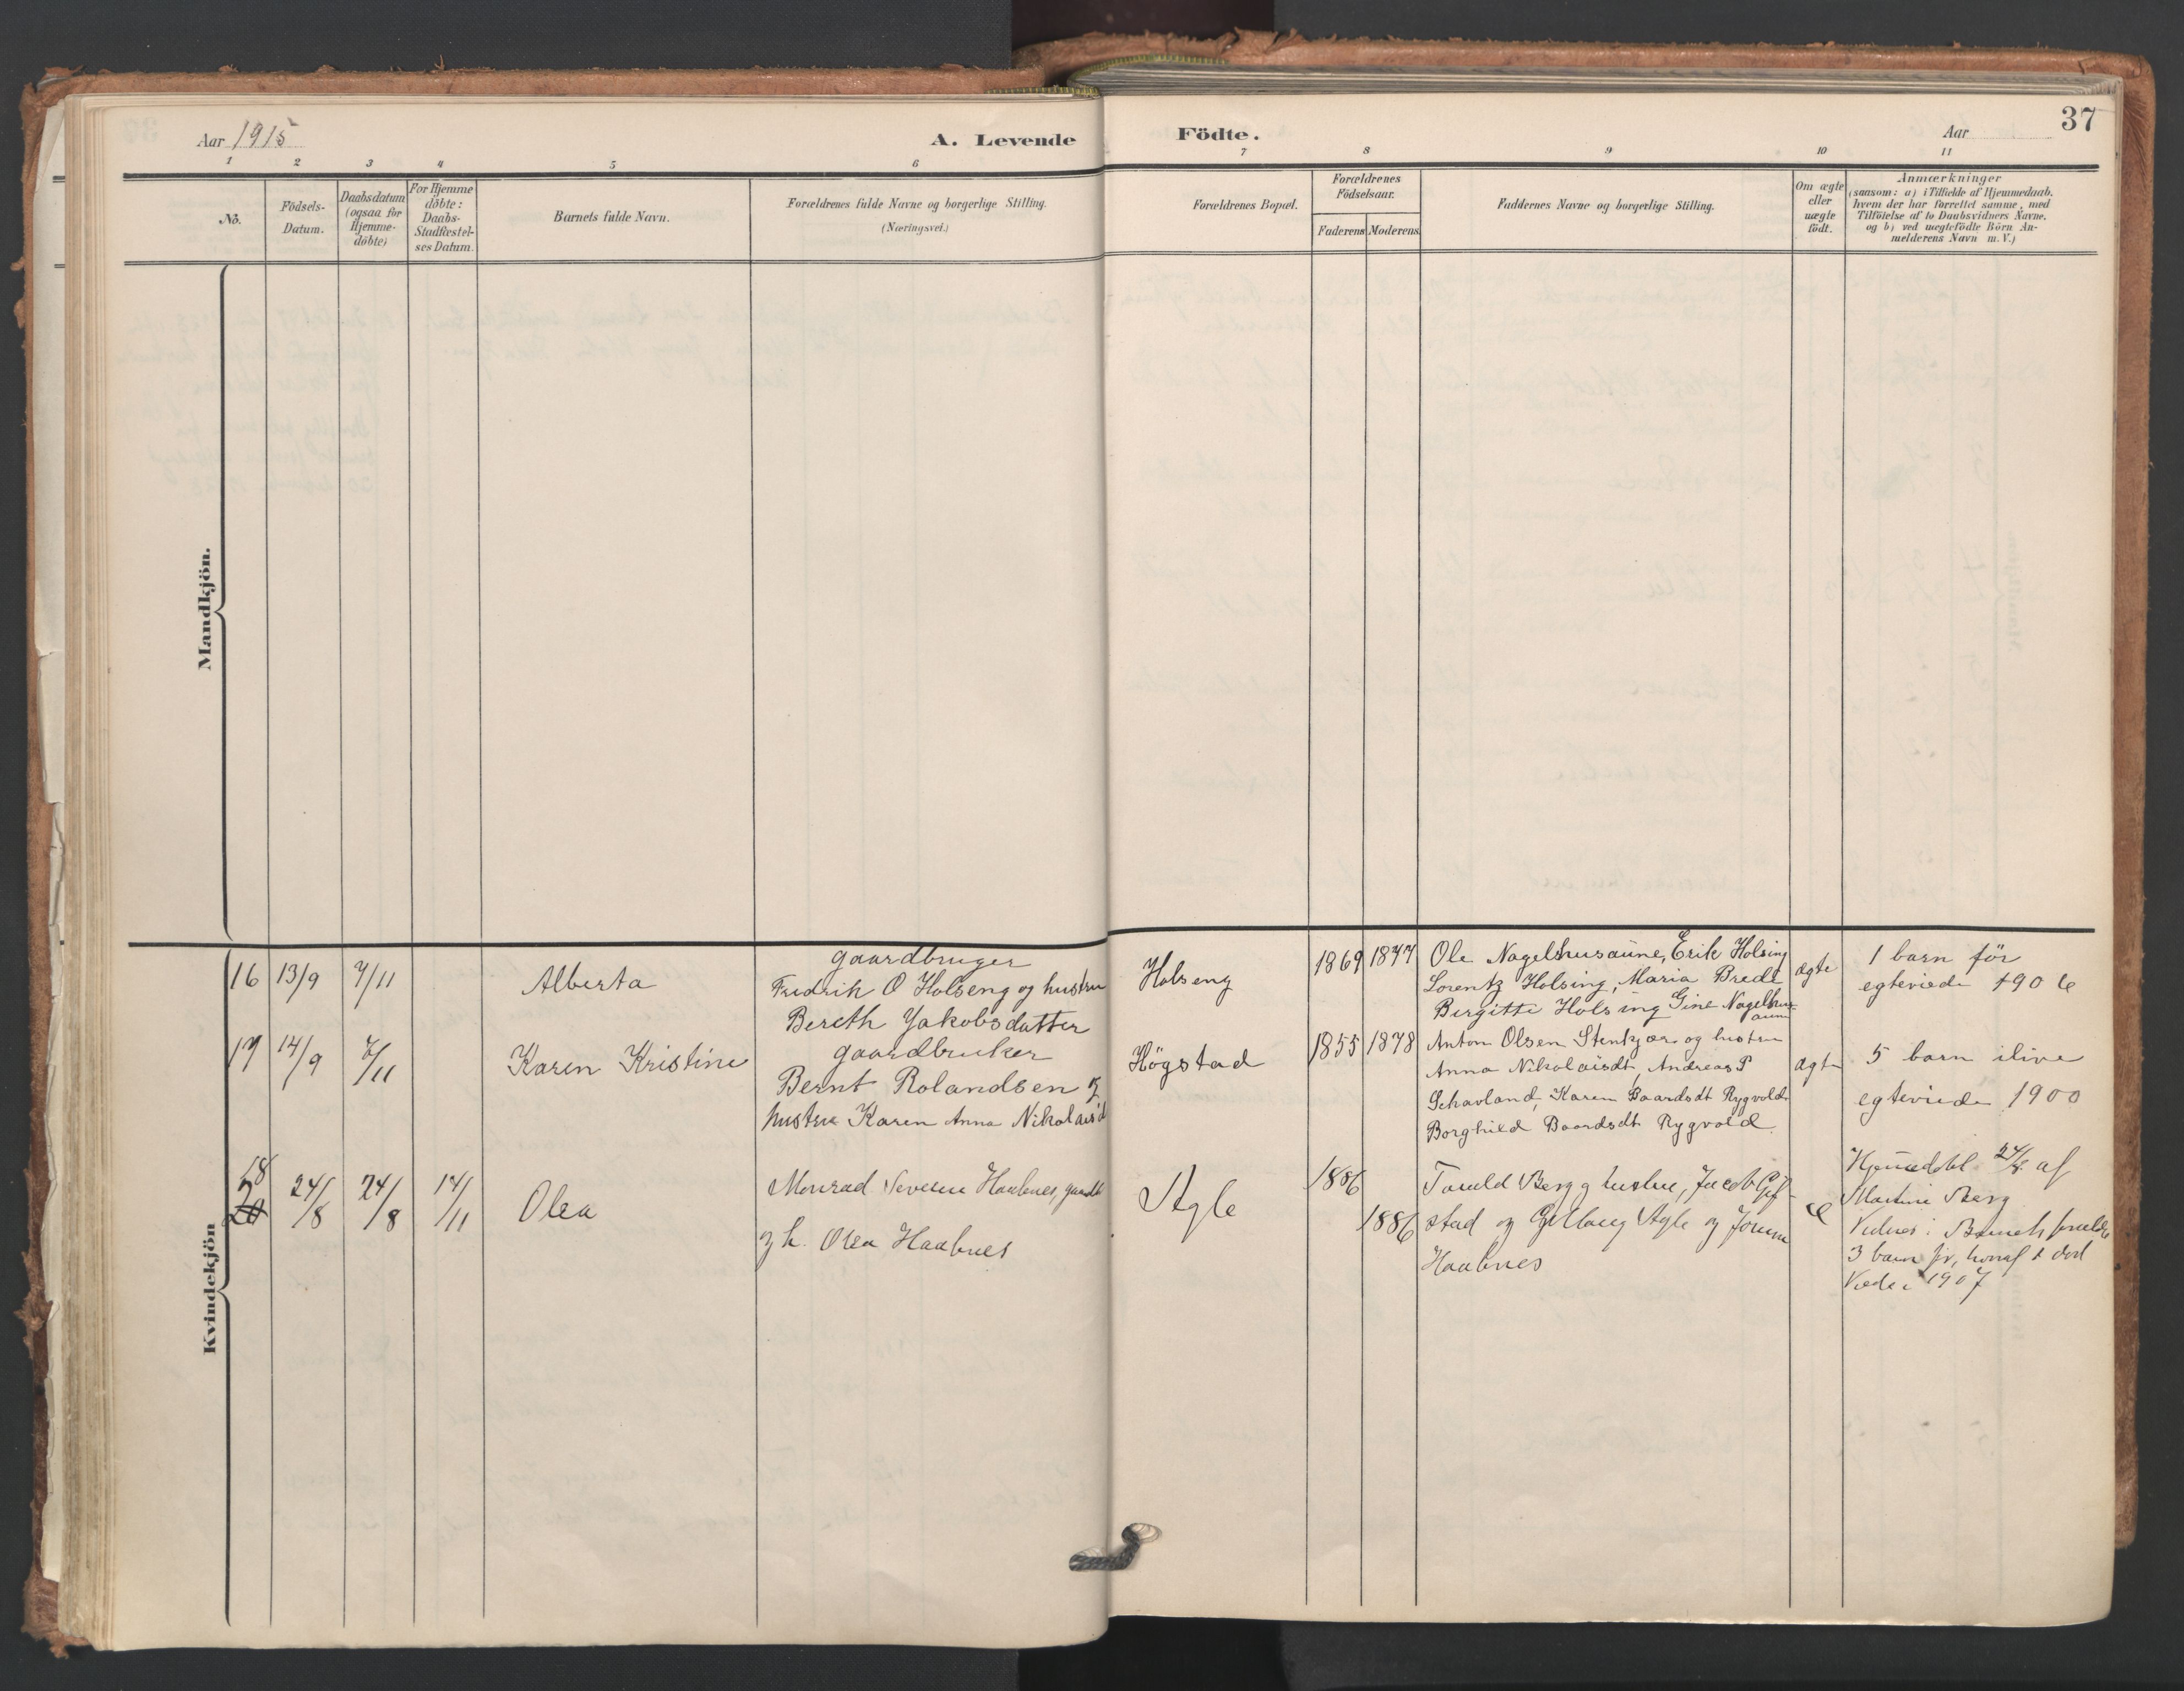 Aar 1915
A. Levende
Födte.
Aar
37
1 2 3 4 5 6 7 8 9 10 11
No.
Födsels-
Datum.
Daabsdatum
(ogsaa for
Hjemme-
döbte)
For Hjemme
döbte:
Daabs-
Stadfæstel-
ses Datum.
Barnets fulde Navn.
Forældrenes fulde Navne og borgerlige Stilling.
(Næringsvei.)
Forældrenes Bopæl.
Forældrenes
Födselsaar.
Faderens Moderens
Faddernes Navne og borgerlige Stilling.
Om ægte
eller
uægte
födt.
Anmærkninger
(saasom: a) i Tilfælde af Hjemmedaab.
hvem der har forrettet samme, med
Tilföielse af to Daabsvidners Navne.
og b) ved uægtefödte Börn An-
melderens Navn m. V.)
Mandkjön.
Kvindekjön
16 13/9 7/11
Alberta
gaardbruger
Fredrik O Holseng og hustru
Bereth Jakobsdatter
Holseng
1869 1877
Ole Nagelhusaune, Erik Holsing
Lorentz Holsing, Maria Brede
Birgitte Holsing Gine Nagelhus-
aune
ægte
1 barn før
egteviede 190
17 14/9 7/11
Karen Kristine
gaardbruker
Bernt Rolandsen og
hustru Karen Anna Nikolaisd
Högstad
1855 1878
Anton Olsen Stenkjær og hustru
Anna Nikolaisdt, Andreas P
Schavland, Karen Baardsdt Rygvold
Borghild Baardsdt Rygvold
ægt
5 barn ilive
egteviede 1900
18
20
24/8 24/8 14/11
Olea
Monrad Haabnes, gaardb
og h. Olea Haabnes
Agle
1886
1886
Berg og hustru, Jacob Gif-
stad og Agle og
Haabnes
e
Hjemmedøbt 24/8 af
Martine Berg
Vidner: Barnets forældre
3 barn før, hvoraf 1 død
Viede i 1907